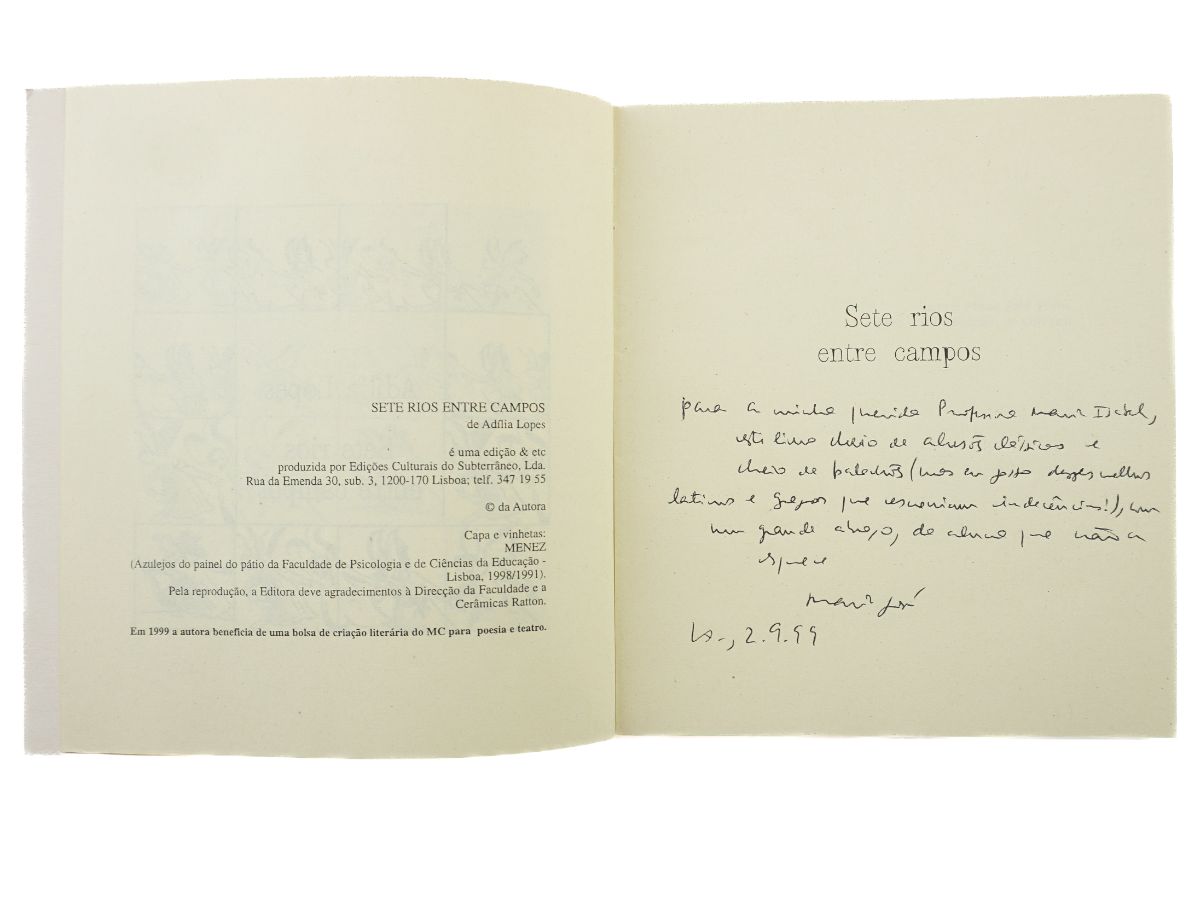 SETE RIOS ENTRE CAMPOS
de Adília Lopes
é uma edição & etc
produzida por Edições Culturais do Subterrâneo, Lda.
Rua da Emenda 30, sub. 3, 1200-170 Lisboa; telf. 347 19 55
© da Autora
Capa e vinhetas:
MENEZ
(Azulejos do painel do pátio da Faculdade de Psicologia e de Ciências da Educação -
Lisboa, 1998/1991).
Pela reprodução, a Editora deve agradecimentos à Direcção da Faculdade e a
Cerâmicas Ratton.
Em 1999 a autora beneficia de uma bolsa de criação literária do MC para poesia e teatro.
Sete rios
entre campos
para a minha querida Professora Maria Isabel,
este livro cheio de alusões clássicas e
cheio de palavrões (mas eu gosto desses velhos
latinos e gregos que escreviam indecências!), com
um grande abraço, da aluna que não a
esquece
Maria José
Lx., 2.9.99